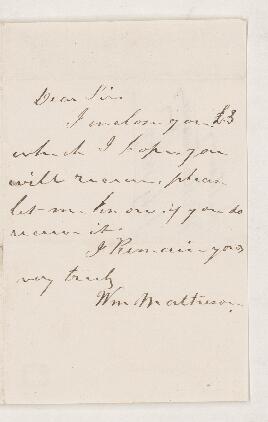 Dear Sir
I inclose you £3
which I hope you
will receive, please
let me know if you do
receive it.
I Remain yours
very truly
Wm Mathieson